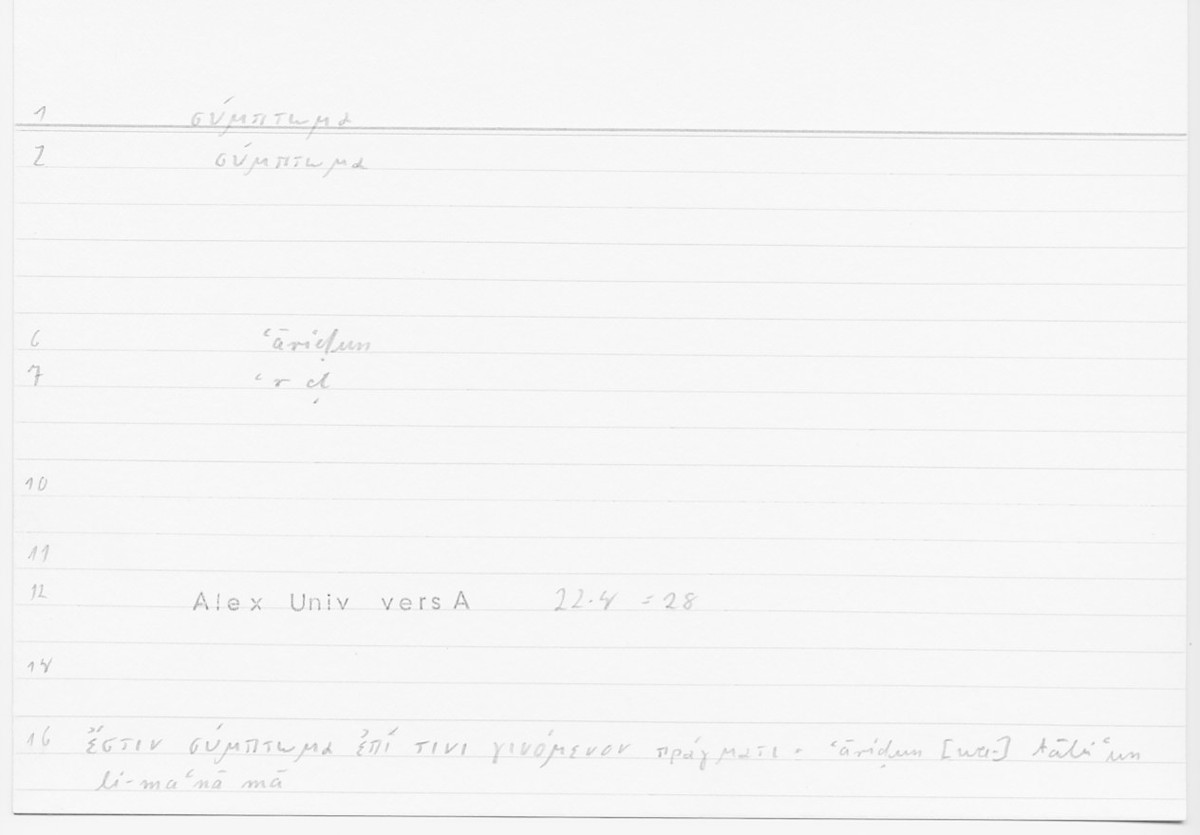 1 σύμπτωμα
2 σύμπτωμα
6 ʿāriḍun
7 ʿr ḍ
10
11
12 Alex Univ vers A 22.4 = 28
14
16 ἔστιν σύμπτωμα ἐπί τινι γινόμενον πράγματι = ʿāriḍun [wa-] tābiʿun
li-maʿnā mā